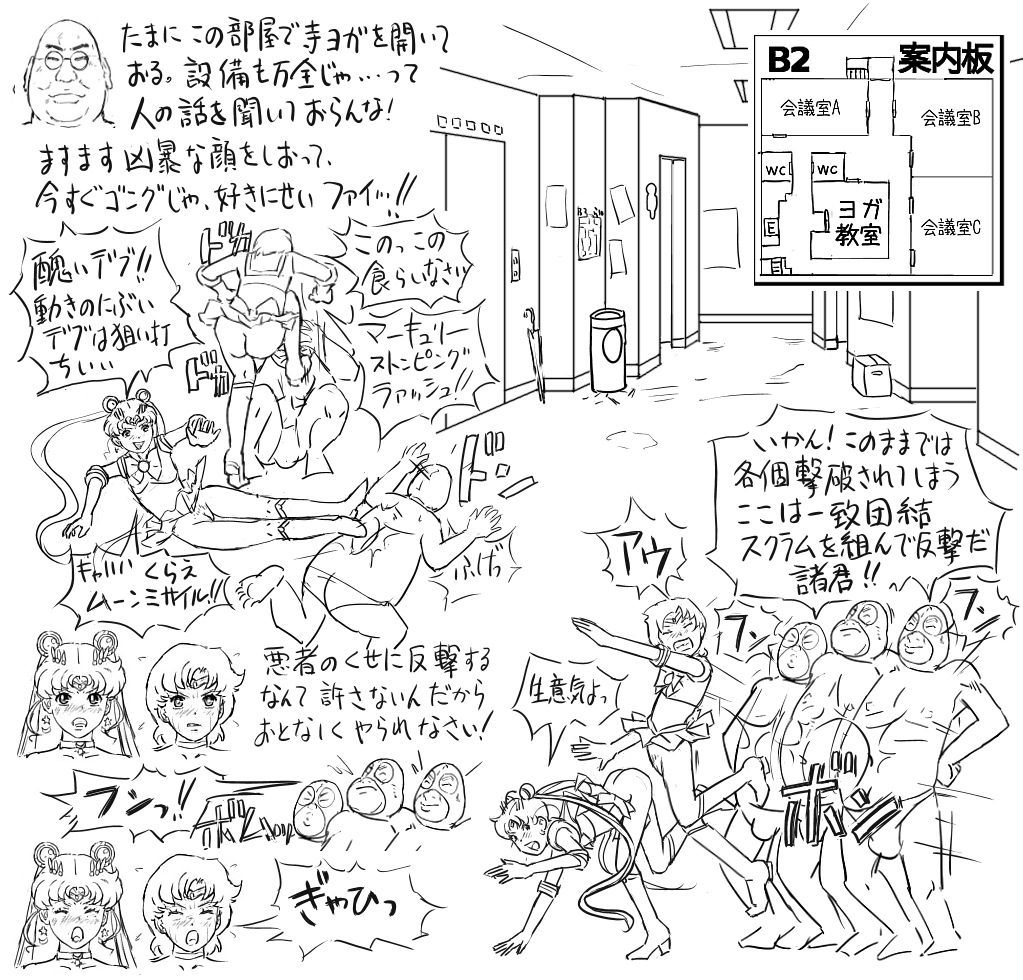 たまにこの部屋で寺ヨガを開いて
おる。設備も万全じゃ…って
人の話を聞いておらんな!
ますます凶暴な顔をしおって、
今すぐゴングじゃ、好きにせい ファイッ!!
B2 案内板
会議室A
会議室B
WC
WC
ヨガ
教室
会議室C
E
B3
醜いデブ!!
動きのにぶい
デブは狙い打
ちぃぃ
ドガ
ドガ
このっこの
食らいなさい
マーキュリー
ストンピング
ラァッシュ!!
キャハハ くらえ
ムーンミサイル!!
ドゴ
ふげっ
いかん!このままでは
各個撃破されてしまう
ここは一致団結
スクラムを組んで反撃だ
諸君!!
アウ
フンッ
フンッ
生意気よっ
ボヨン
悪者のくせに反撃する
なんて許さないんだから
おとなしくやられなさい!
フンっ!!
ぎゃひっ